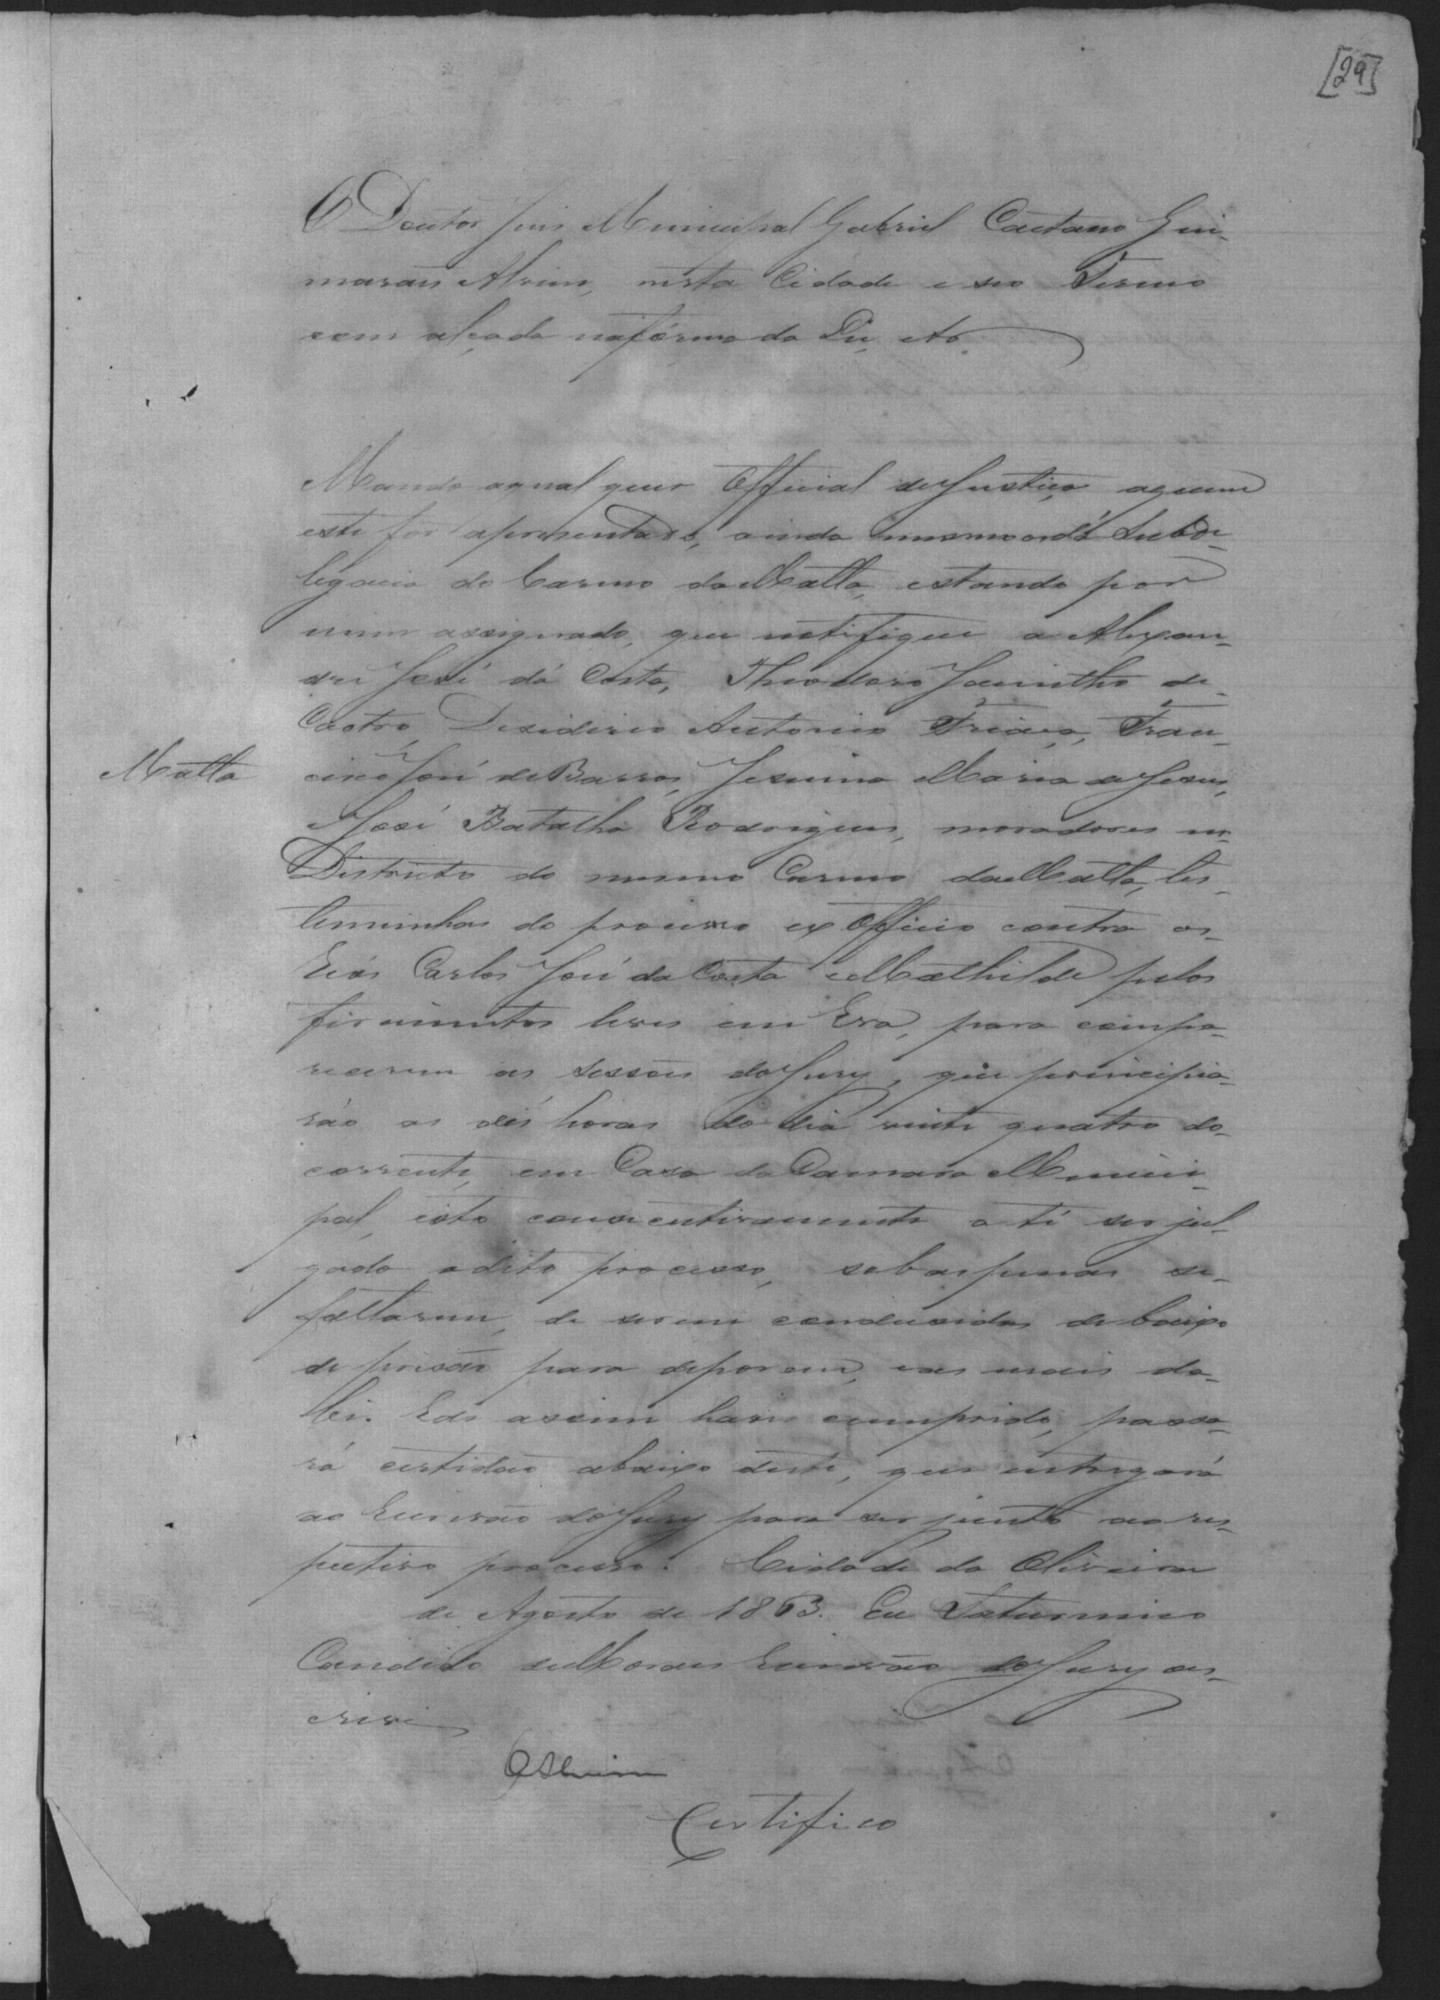 [29]
O Doutor Juis Municipal Gabriel Caetano Gui-
marães Alvim, nesta Cidade e seo Termo
com alçada na fórma da Lei, etc
Mando aqual quer Official de Justiça aquem
este for apresentado, ainda mesmo os da Subde-
legacia do Carmo da Matta, estando por
mim assignado, que notifique a Alexan-
dre José da Costa, Theodoro Jacintho de
Castro, Desiderio Antonio Friaça, Fran-
cisco José de Barros, Jesuina Maria de Jesus,
Matta
José Batalha Rodrigues, moradores no
Districto do mesmo Carmo da Matta, tes-
temunhas do processo ex Officio contra os
Reos Carlos José da Costa e Mathilde pelos
ferimentos leves em Eva, para compa-
recerem as sessões do Jury, que principia-
rão as dés horas do dia vinte quatro do
corrente, em Casa da Camara Munici-
pal, isto consecutivamente até ser jul-
gado o dito processo, sob as penas se
faltarem, de serem condusidos de baixo
de prisão para deporem, e as mais da
Lei. E de assim haver cumprido, passa-
rá certidão abaixo deste, que entregará
ao Escrivão do Jury para ser junto ao res-
pectivo processo. Cidade da Oliveira
de Agosto de 1863. Eu Saturnino
Candido de Moraes Escrivão do Jury es-
crevi
Alvim
Certifico